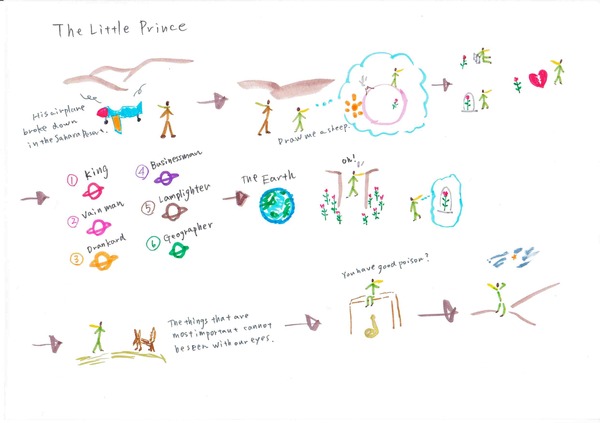 The Little Prince
His airplane
broke down
in the Sahara Desert.
Draw me a sheep.
① King
② Vain man
③ Drankard
④ Businessman
⑤ Lamplighter
⑥ Geographer
The Earth
Oh!
The things that are
most important cannot
be seen with our eyes.
You have good poison?